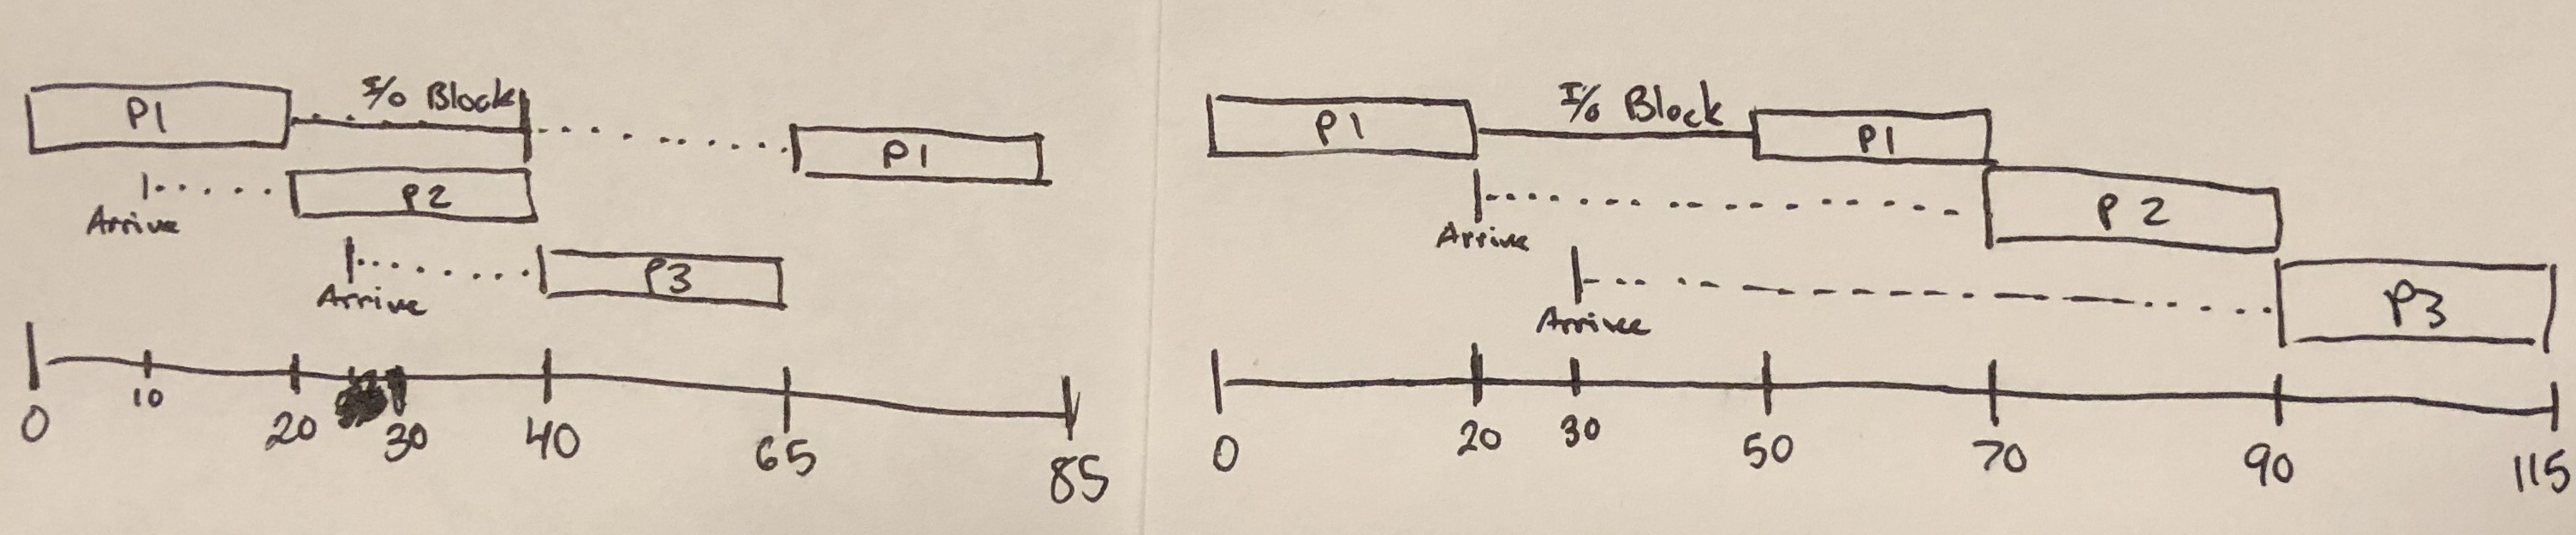 I/o Block
P1
P1
P2
Arrive
P3
Arrive
0 10 20 30 40 65 85
I/o Block
P1
P1
P2
Arrive
P3
Arrivee
0 20 30 50 70 90 115